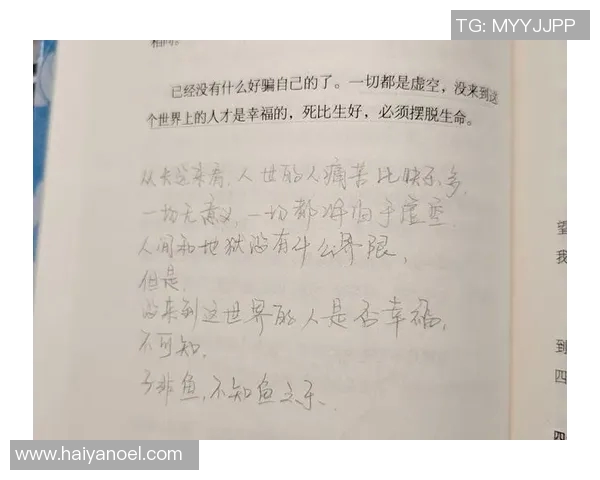 TG: MYYJJPP
相同。
已经没有什么好骗自己的了。一切都是虚空，没来到这
个世界上的人才是幸福的，死比生好，必须摆脱生命。
从长远来看，人世的人痛苦比快乐多，
一切无意义，一切都将归于虚空
人间和地狱没有什么界限，
但是，
没来到这世界的人是否幸福，
不可知，
子非鱼，不知鱼之乐、
望
我
到
四
四
www.haiyanoel.com